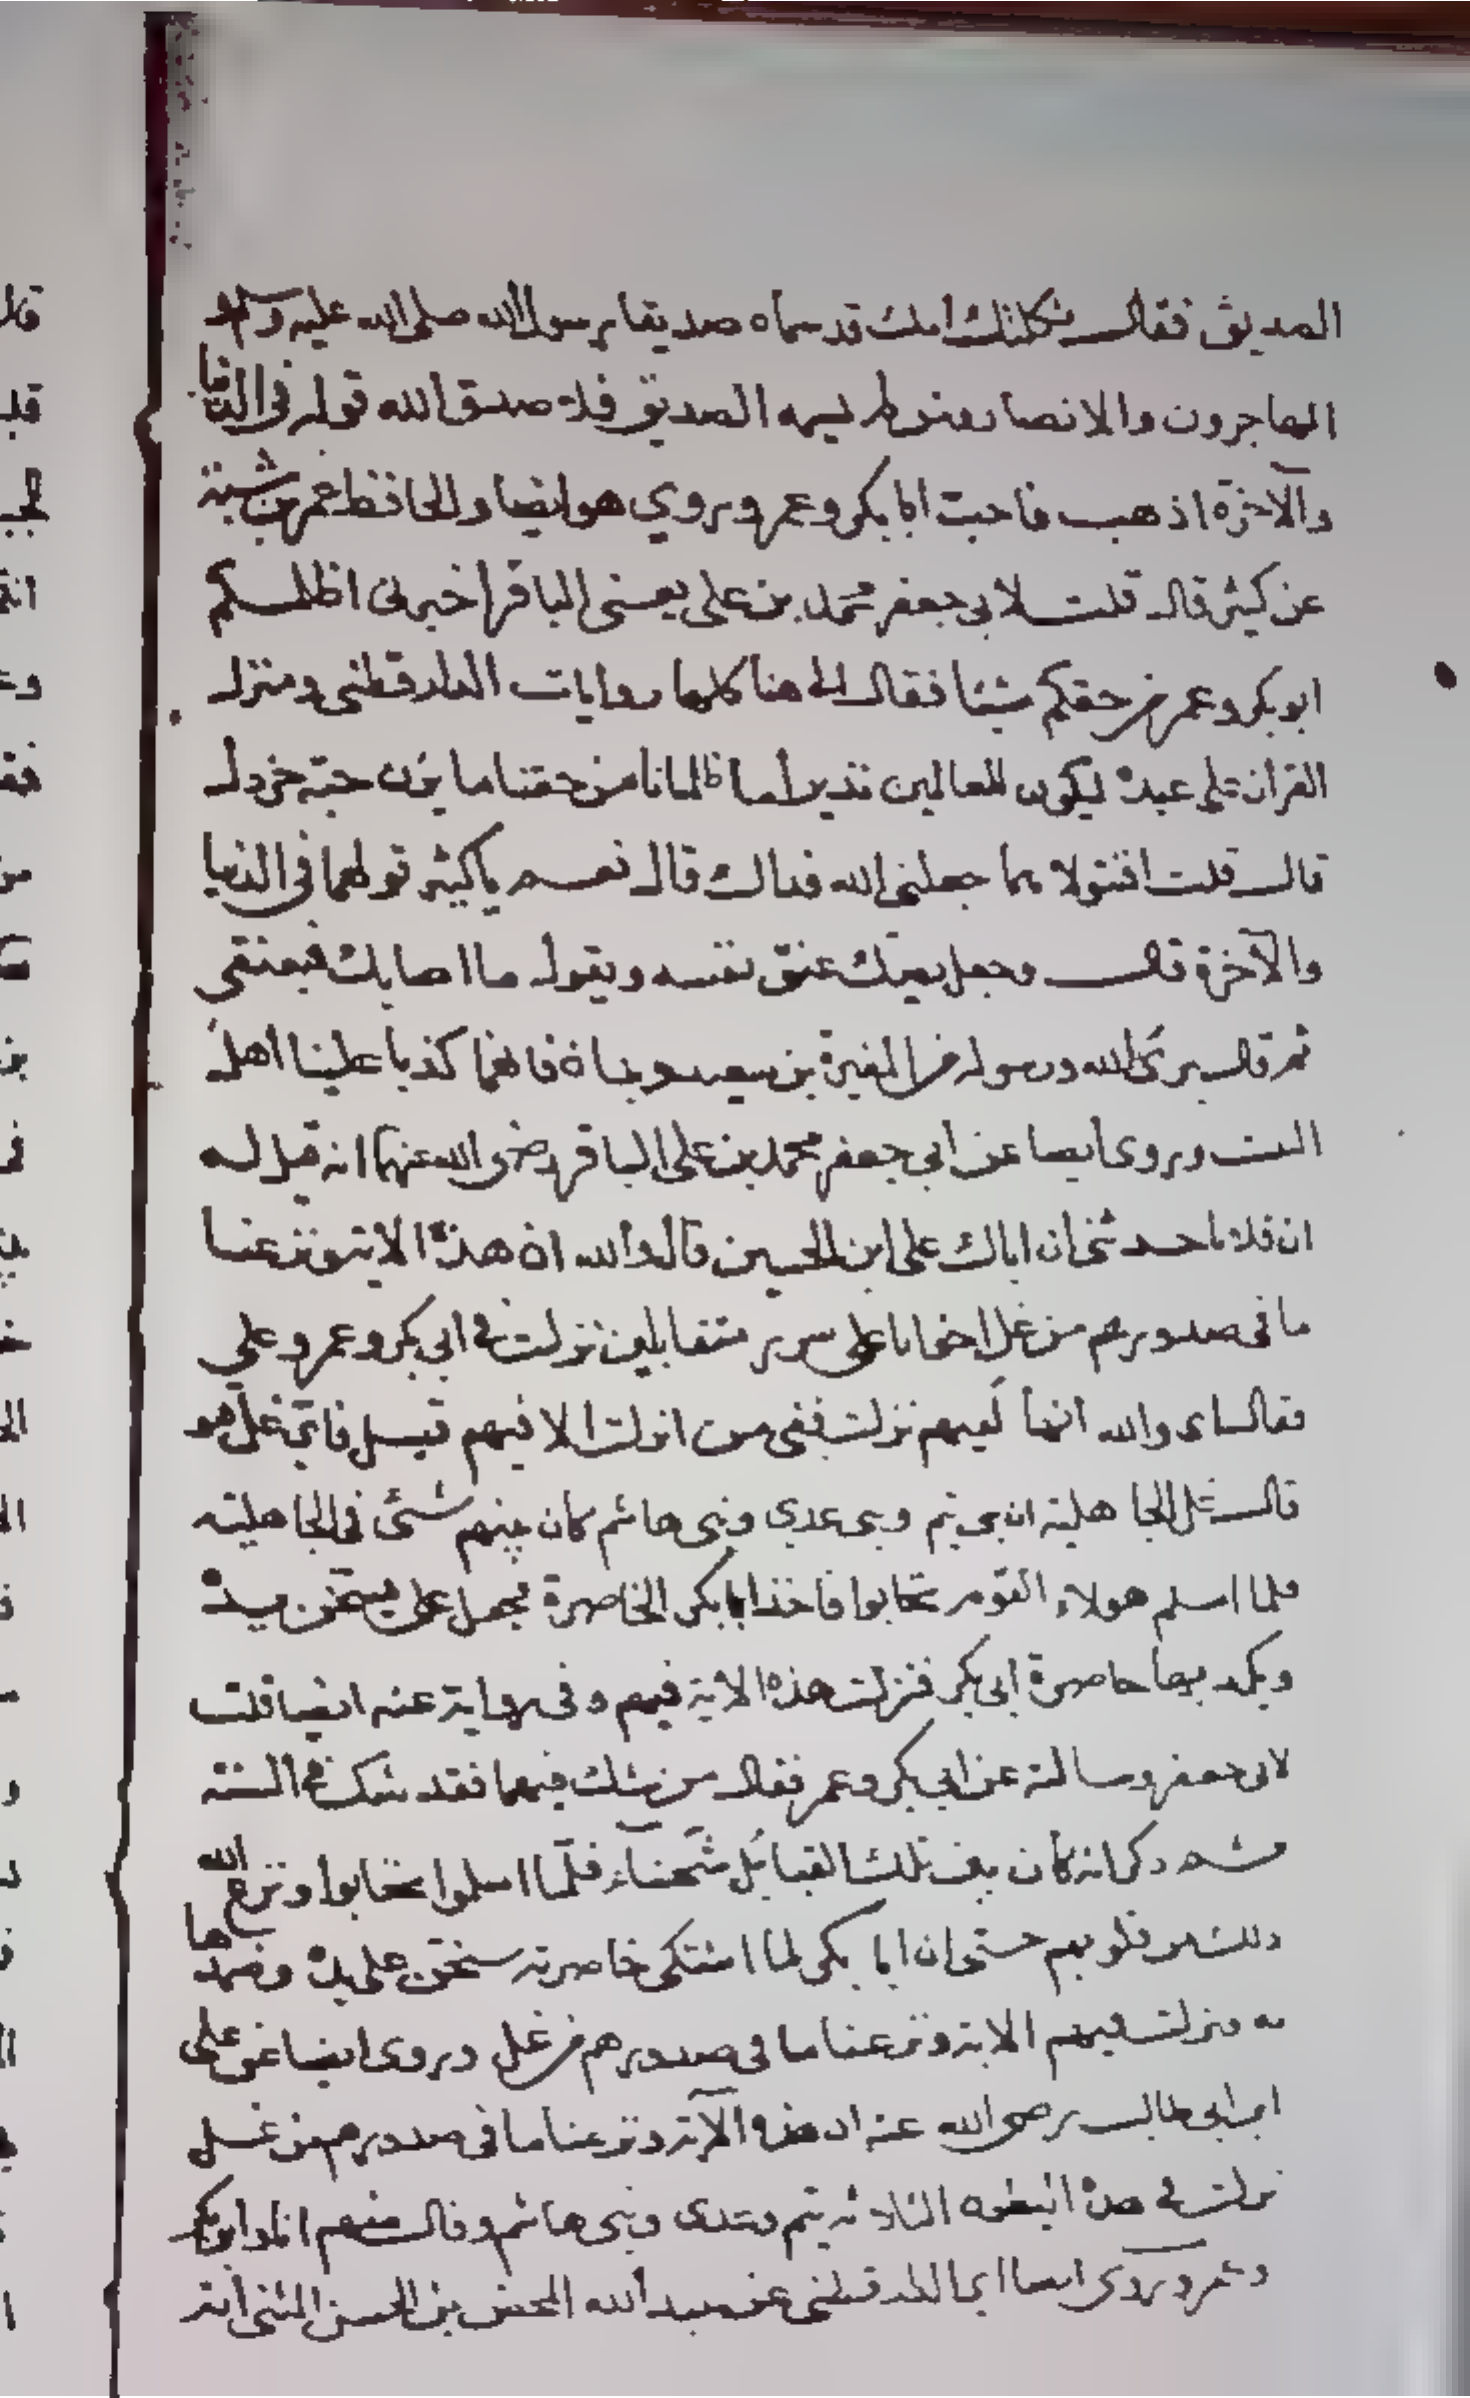 الصديق فقال ثكلتك امك قد سماه صديقا رسول الله صلى الله عليه وسلم و
المهاجرون والانصار ومن لم يسمه الصديق فلا صدق الله قوله في الدنيا
والآخرة اذهب فاحب ابا بكر وعمر وروي هو ايضا والحافظ عمر بن شبة
عن كثير قال قلت لابي جعفر محمد بن علي يعني الباقر اخبرني اظلمكم
ابو بكر وعمر من حقكم شيئا فقال الى هنا كلها روايات الدار قطني ومنزل
القران على عبده ليكون للعالمين نذيرا ما ظلمانا من حقنا ما يزن حبة خردل
قال قلت افتولاهما جعلني الله فداك قال نعم يا كثير تولهما في الدنيا
والآخرة قال وجعل يصك عنق نفسه ويقول ما اصابك فبعنقي
ثم قال برئ الله ورسوله من المغيرة بن سعيد وبناة فانهما كذبا علينا اهل
البيت وروى ايضا عن ابي جعفر محمد بن علي الباقر رضي الله عنهما انه قيل له
ان فلانا حدثني ان اباك علي ابن الحسين قال والله ان هذه الاية ونزعنا
ما في صدورهم من غل اخوانا على سرر متقابلين نزلت في ابي بكر وعمر وعلي
فقال اى والله انها لفيهم نزلت ففي من انزلت الا فيهم قيل فاي غل هو
قال غل الجاهلية ان بني تيم وبني عدي وبني هاشم كان بينهم شئ في الجاهلية
فلما اسلم هولاء القوم تحابوا فاخذ ابا بكر الخاصرة فجعل علي يسخن يده
ويكمد بها خاصرة ابي بكر فنزلت هذه الاية فيهم وفي رواية عنه ايضا قلت
لابي جعفر وسالته عن ابي بكر وعمر فقال من شك فيهما فقد شك في السنة
ثم ذكر انه كان بين تلك القبائل شحناء فلما اسلموا تحابوا ونزع الله
ذلك من قلوبهم حتى ان ابا بكر لما اشتكى خاصرته سخن علي يده وضمدها
به فنزلت فيهم الاية ونزعنا ما في صدورهم من غل وروى ايضا عن علي
ابن ابي طالب رضي الله عنه ان هذه الآية ونزعنا ما في صدورهم من غل
نزلت في هذه البطون الثلاثة تيم وعدى وبني هاشم وقال منهم انا وابو بكر
وعمر وروى ايضا اي الدار قطني عن عبد الله المحض بن الحسن المثنى انه